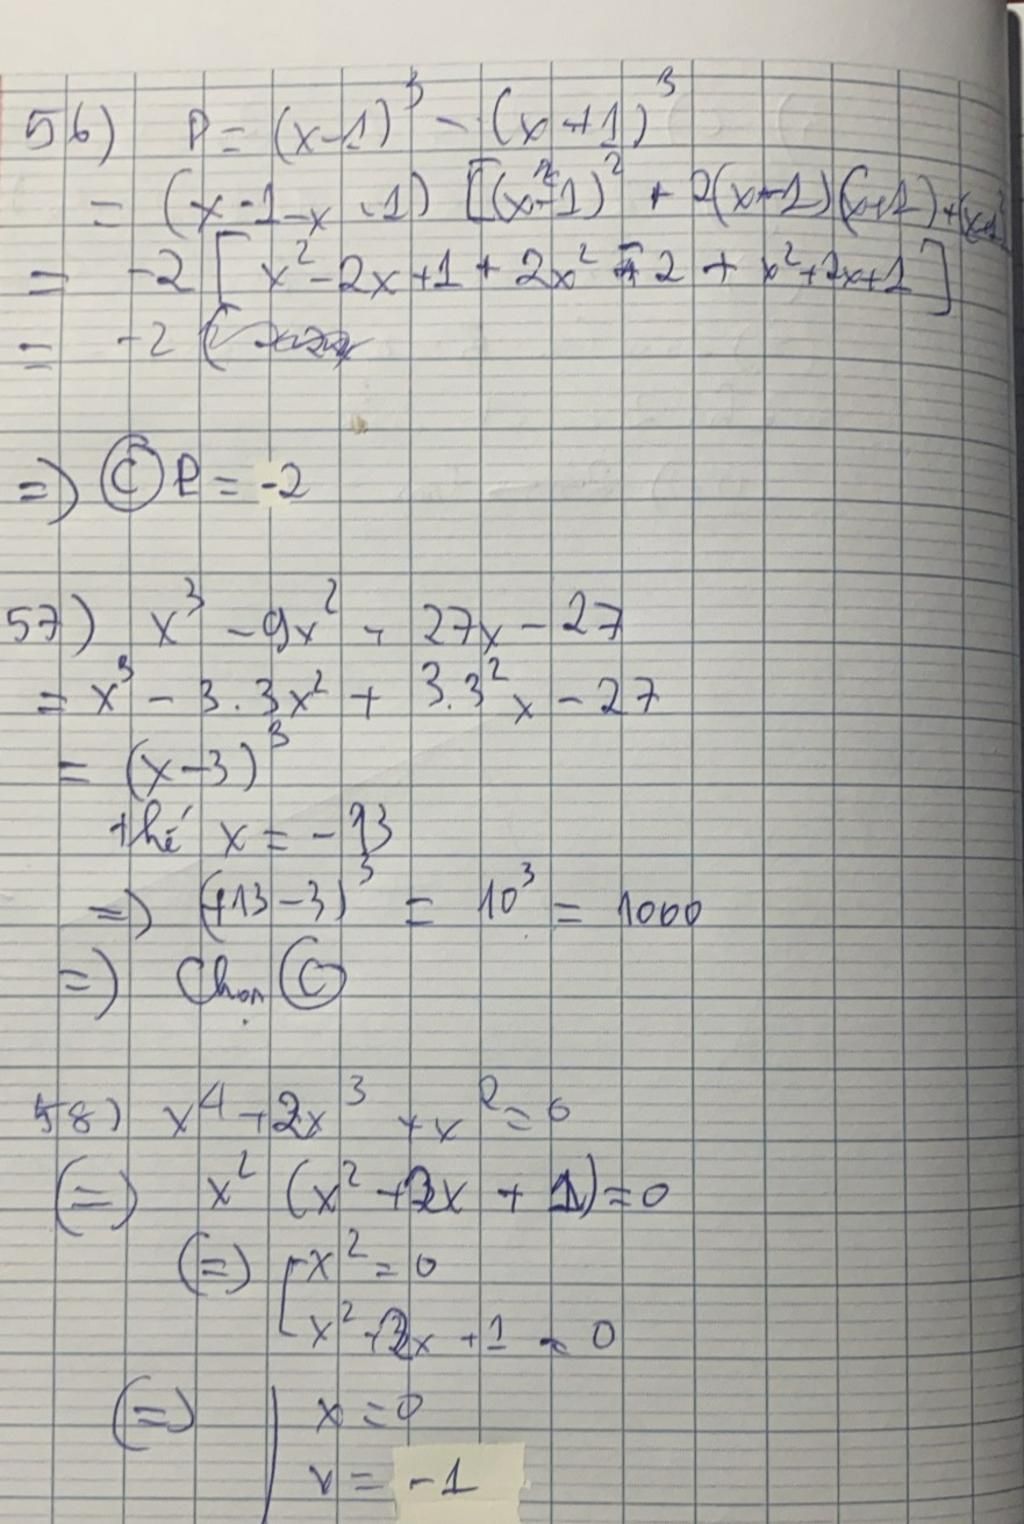 56) P = (x-1)³ - (x+1)³
= (x-1-x-1) [(x-1)² + 2(x-1)(x+1) + (x+1)²
= -2 [x² - 2x + 1 + 2x² - 2 + x² + 2x + 1]
= -2 (
=) Ⓒ P = -2
57) x³ - 9x² + 27x - 27
= x³ - 3.3x² + 3.3²x - 27
= (x-3)³
thế x = -13
=) (+13-3)³ = 10³ = 1000
=) Chọn Ⓒ
58) x⁴ + 2x³ + x² = 0
(=) x² (x² + 2x + 1) = 0
(=) [ x² = 0
x² + 2x + 1 = 0
(=) | x = 0
x = -1